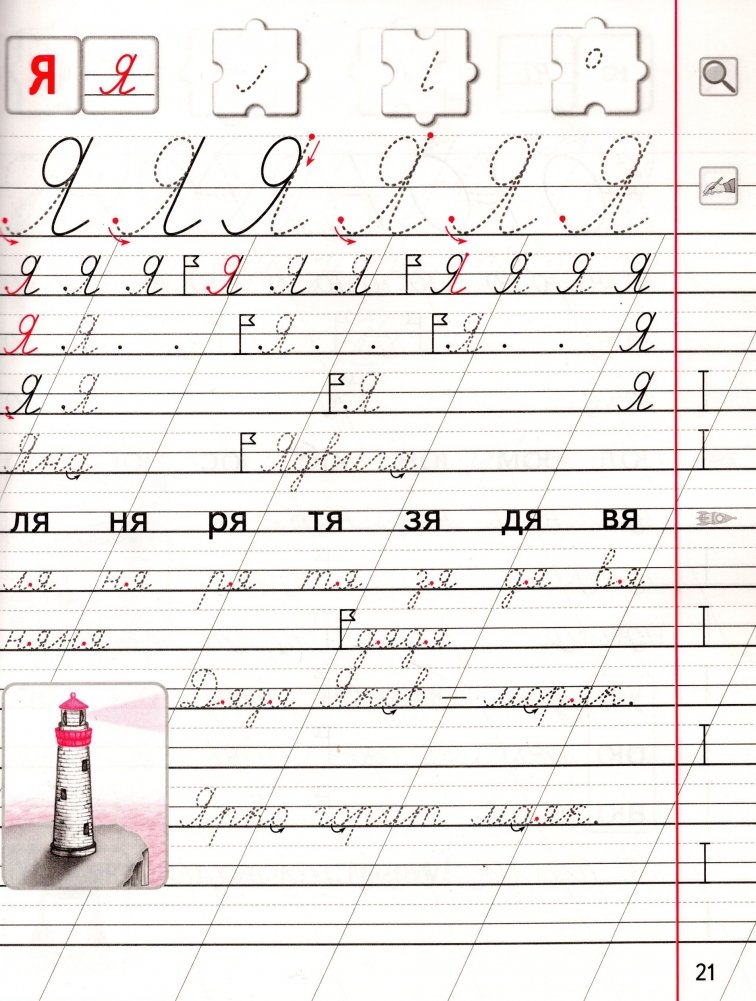 Я Я
Я Я Я Я Я Я
Я Я Я Я Я Я Я Я Я Я
Я Я Я Я Я
Я Я Я Я
Яна Ядвига
ля ня ря тя зя дя вя
ля ня ря тя зя дя вя
няня дядя
Дядя Яков — моряк.
Ярко горит маяк.
21